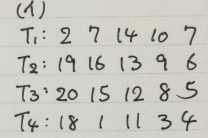 (イ)
T1: 2 7 14 10 7
T2: 19 16 13 9 6
T3: 20 15 12 8 5
T4: 18 1 11 3 4